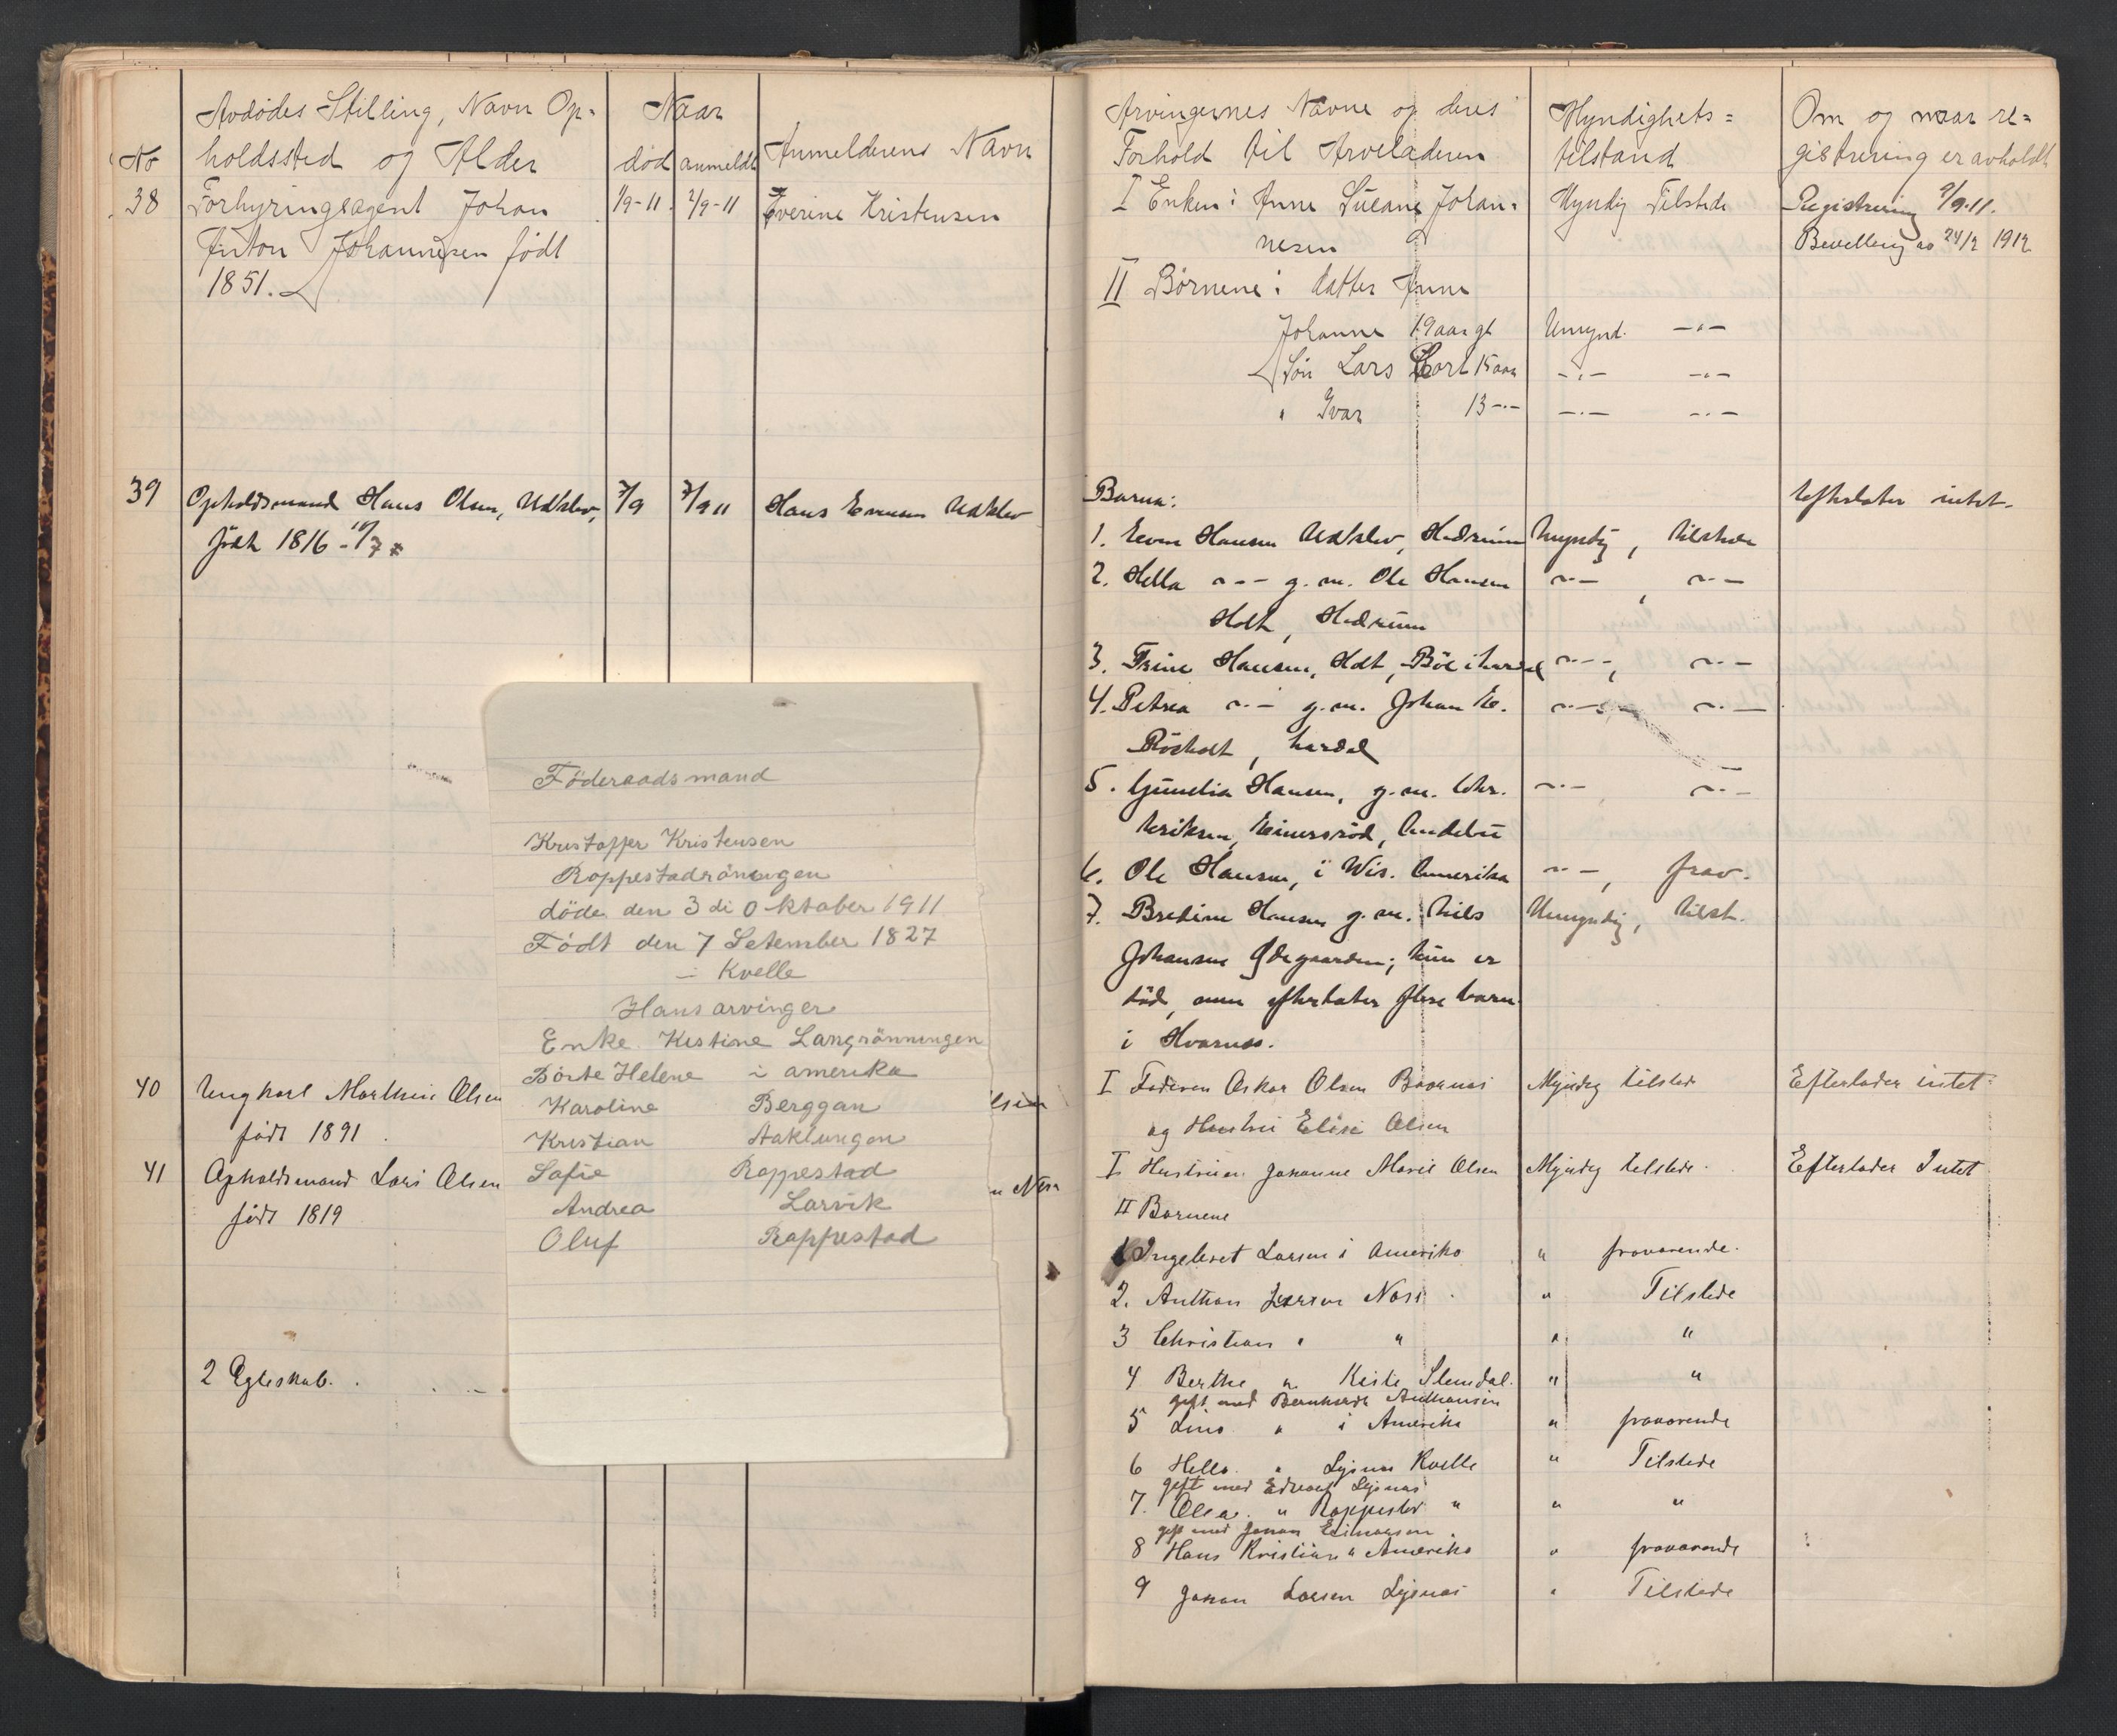 Avdødes Stilling, Navn Op=
No holdssted og Alder
Naar
død anmeldt
Anmelderens Navn
38 Forhyringsagent Johan
Anton Johannesen født
1851.
1/9-11. 2/9-11 Everine Kristensen
39 Opholdsmand Hans Olsen,
født 1816
7/9 7/9 11 Hans Evensen
Føderaadsmand
Kristoffer Kristensen
Roppestadrönengen
døde den 3 di Oktober 1911
Født den 7 Setember 1827
i Kvelle
Hans arvinger
Enke Kistine Langrönningen
Börte Helene i amerika
Karoline Berggan
Kristian Aaklungen
Sofie Roppestad
Andrea Larvik
Oluf Roppestad
40 Ungkarl Marthin Olsen
født 1891.
41 Opholdsmand Lars Olsen
født 1819
2 Egteskab.
Arvingernes Navne og deres
Forhold til Arveladeren
Myndighets=
tilstand
Om og naar re=
gistrering er avholdt
I Enken: Anne Lucane Johan=
nesen
Myndig Tilstede
Registrering 9/9-11.
Bevilling av 24/2 1912
II Børnene: datter Anne
Johanne 19 aar gl Umynd. -"-
Søn Lars Carl 15 aar -"- -"-
" Ivar 13 -"- -"- -"-
Barna: Efterlater intet.
1. Even Hansen, Hedrum myndig, tilstede
2. Hella -"- g.m. Ole Hansen -"-, -"-
Holt, Hedrum
3. Trine Hansen, Holt, -"-, -"-
4. Petrea -"- g.m. Johan E. -"- -"-
Röskolt, Lardal
5. Hansen, g.m. Chr. -"- -"-
Eriksen, Andebu
6. Ole Hansen, i Wis. Amerika -"-, frav.
7. Bredine Hansen g.m. Nils Umyndig, tilst.
Johansen Ødegaarden; hun er
död, men efterlater flere barn
i Hvarnes.
I Faderen Oskar Olsen Myndig tilstede Efterlader intet
og Hustru Elise Olsen
I Hustruen Johanne Marie Olsen Myndig tilstede. Efterlader Intet
II Barnene
1 Ingeleret Larsen i Amerika " fraværende.
2. Anthon Larsen Næss " Tilstede
3 Christian " " " "
4 Berthe " Kiste Stemdal. " "
gift med Bernhardt Anthonsen
5 Lina " i Amerika " fraværende
6 Hella. " Lysnes Kvelle " Tilstede
gift med Edvard Lysnes
7. Olea. " Roppestad " " "
gift med Johan Einarsen
8 Hans Kristian " Amerika " fraværende
9 Johan Larsen Lysnes " Tilstede